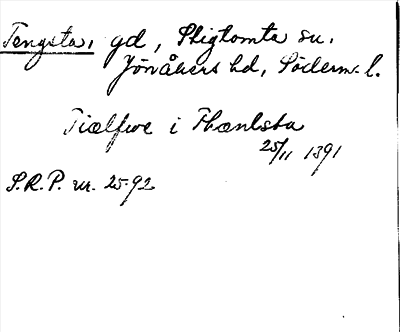 Tengsta, gd, Stigtomta sn.
Jönåkers hd, Söderm. l.
Tiælfwe i Thænlsta
25/11 1391
S.R.P. nr. 2592